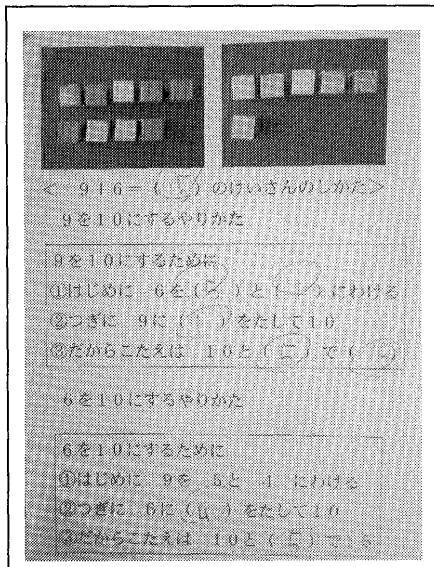 < 9+6=( ) のけいさんのしかた>
9を10にするやりかた
9を10にするために
①はじめに 6を( )と( )にわける
②つぎに 9に( )をたして10
③だからこたえは 10と( )で( )
6を10にするやりかた
6を10にするために
①はじめに 9を 5と 4 にわける
②つぎに 6に(4)をたして10
③だからこたえは 10と( )で